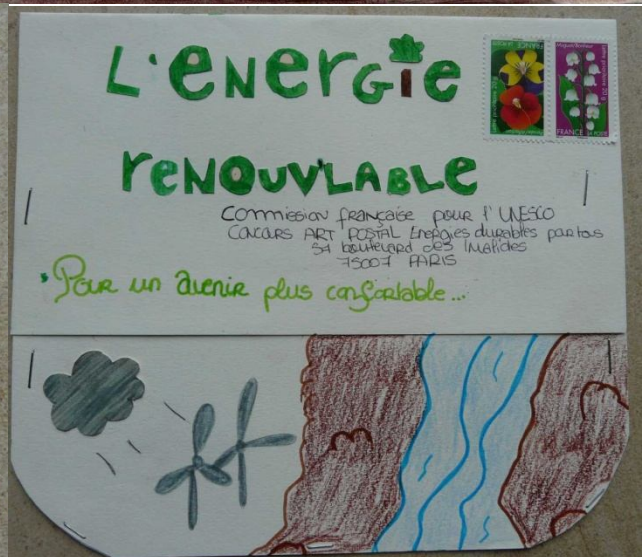 L'ENERGIE
RENOUV'LABLE
Commission française pour l'UNESCO
CONCOURS ART POSTAL Energies durables par tous
57 boulevard des Invalides
75007 PARIS
Pour un avenir plus confortable...
FRANCE
FRANCE